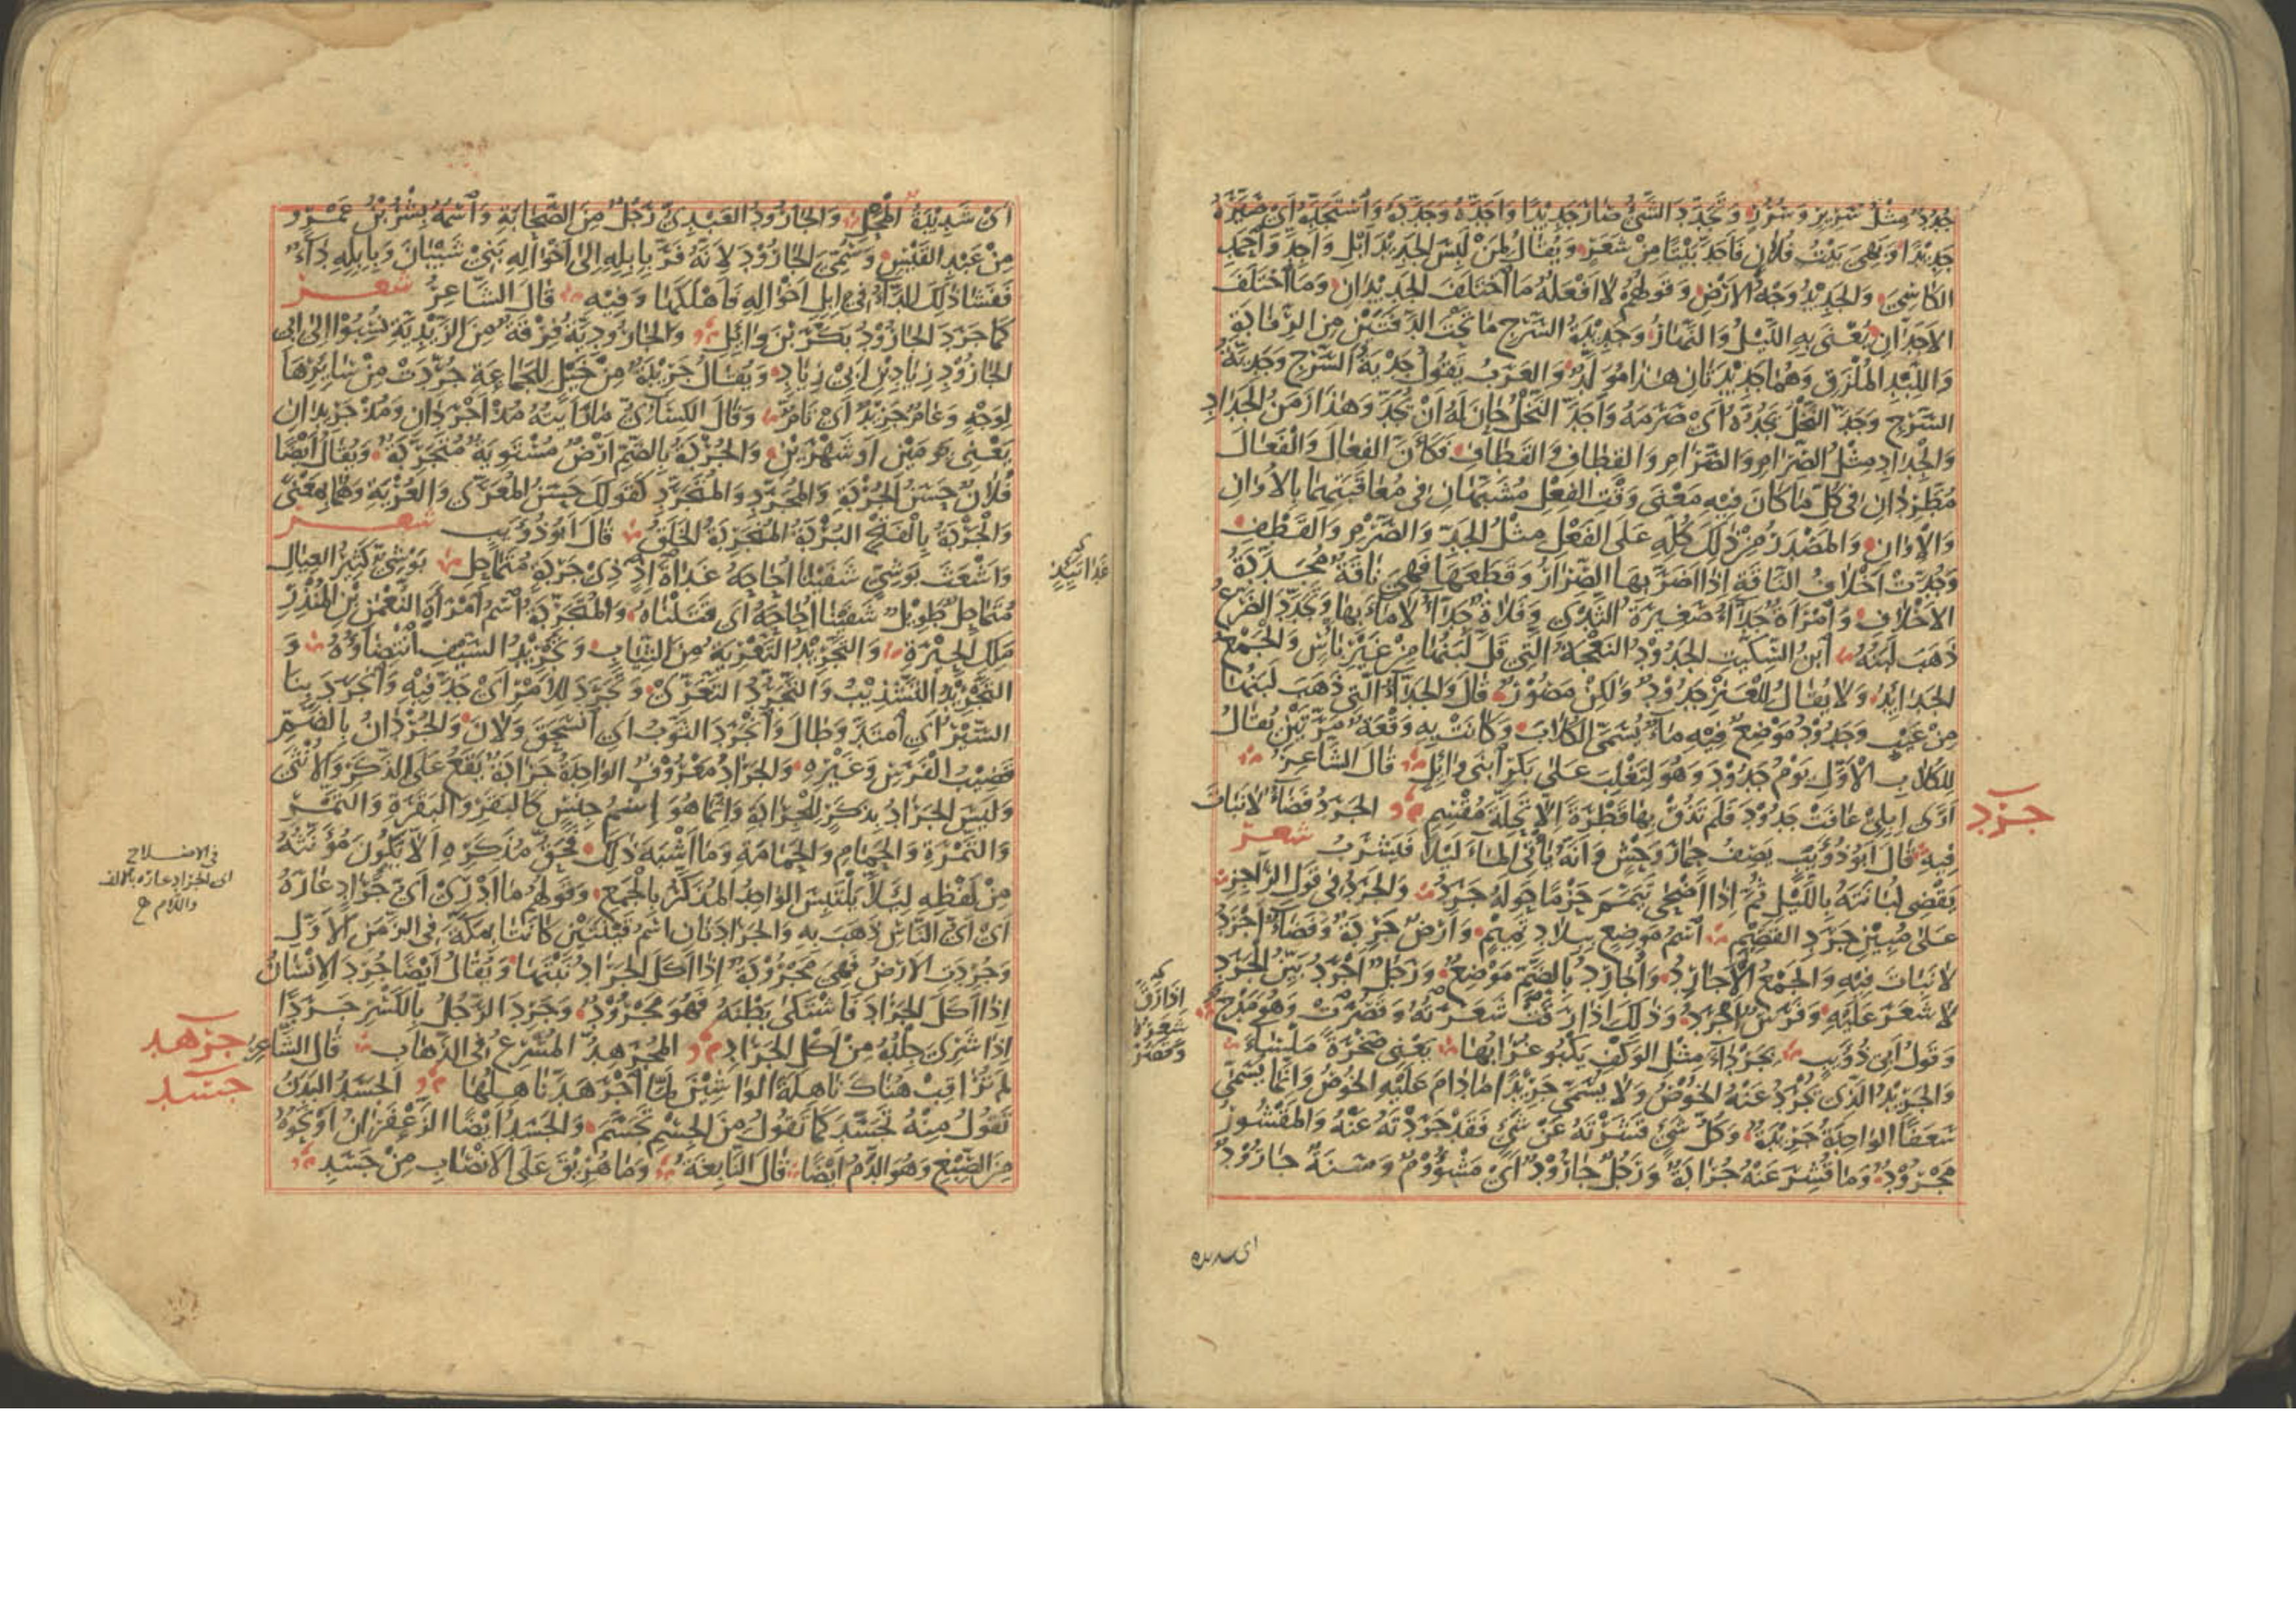 جُدُدٌ مِثْلُ سَرِيرٍ وَسُرُرٍ وَتَجَدَّدَ الشَّيْءُ صَارَ جَدِيدًا وَأَجَدَّهُ وَجَدَّدَهُ وَاسْتَجَدَّهُ أَيْ صَيَّرَهُ
جَدِيدًا وَبَهِيَ بَيْتُ فُلَانٍ فَأَجَدَّ بَيْتًا مِنْ شَعَرٍ وَيُقَالُ لِمَنْ لَبِسَ الجَدِيدَ أَبْلِ وَأَجِدَّ وَاحْمَدِ
الكَاسِيَ وَالجَدِيدُ وَجْهُ الأَرْضِ وَقَوْلُهُمْ لَا أَفْعَلُهُ مَا اخْتَلَفَ الجَدِيدَانِ وَمَا اخْتَلَفَ
الأَجَدَّانِ يُعْنَى بِهِ اللَّيْلُ وَالنَّهَارُ وَجَدِيدَةُ السَّرْجِ مَا تَحْتَ الدَّفَّتَيْنِ مِنَ الرِّفَادَةِ
وَاللِّبْدِ المُلْزَقِ وَهُمَا جَدِيدَتَانِ هَذَا مُوَلَّدٌ وَالعَرَبُ تَقُولُ جَدْيَةُ السَّرْجِ وَجَدِيَّةُ
السَّرْجِ وَجَدَّ النَّخْلَ يَجُدُّهُ أَيْ صَرَمَهُ وَأَجَدَّ النَّخْلُ حَانَ لَهُ أَنْ يُجَدَّ وَهَذَا زَمَنُ الجَدَادِ
وَالجِدَادِ مِثْلُ الصِّرَامِ وَالصَّرَامِ وَالقِطَافِ وَالقَطَافِ فَكَأَنَّ الفِعَالَ وَالفَعَالَ
مُطَّرِدَانِ فِي كُلِّ مَا كَانَ فِيهِ مَعْنَى وَقْتِ الفِعْلِ مُشَبَّهَانِ فِي مُعَاقَبَتِهِمَا بِالأَوَانِ
وَالإِوَانِ وَالمَصْدَرُ مِنْ ذَلِكَ كُلِّهِ عَلَى الفَعْلِ مِثْلُ الجَدِّ وَالصَّرْمِ وَالقَطْفِ
وَجُدَّتْ أَخْلَافُ النَّاقَةِ إِذَا أَضَرَّ بِهَا الصِّرَارُ وَقَطَعَهَا فَهِيَ نَاقَةٌ مُجَدَّدَةُ
الأَخْلَافِ وَامْرَأَةٌ جَدَّاءُ صَغِيرَةُ الثَّدْيِ وَفَلَاةٌ جَدَّاءُ لَا مَاءَ بِهَا وَتَجَدَّدَ الضَّرْعُ
ذَهَبَ لَبَنُهُ ابْنُ السِّكِّيتِ الجَدُودُ النَّعْجَةُ الَّتِي قَلَّ لَبَنُهَا مِنْ غَيْرِ بَأْسٍ وَالجَمْعُ
الجَدَائِدُ وَلَا يُقَالُ لِلْعَنْزِ جَدُودٌ وَلَكِنْ مَصُورٌ قَالَ وَالجَدَّاءُ الَّتِي ذَهَبَ لَبَنُهَا
مِنْ عَيْبٍ وَجَدُودٌ مَوْضِعٌ فِيهِ مَاءٌ يُسَمَّى الكُلَابَ وَكَانَتْ بِهِ وَقْعَةٌ مَرَّتَيْنِ يُقَالُ
لِلْكُلَابِ الأَوَّلِ يَوْمُ جَدُودَ وَهُوَ لِتَغْلِبَ عَلَى بَكْرِ ابْنَيْ وَائِلٍ قَالَ الشَّاعِرُ
أَرَى إِبِلِي عَافَتْ جَدُودَ فَلَمْ تَذُقْ بِهَا قَطْرَةً إِلَّا تَحِلَّةَ مُقْسِمِ الجَرَدُ فَضَاءٌ لَا نَبَاتَ
جرد
فِيهِ قَالَ أَبُو ذُؤَيْبٍ يَصِفُ حِمَارَ وَحْشٍ وَأَنَّهُ يَأْتِي المَاءَ لَيْلًا فَيَشْرَبُ شعر
يَقْضِي لُبَانَتَهُ بِاللَّيْلِ ثُمَّ إِذَا أَضْحَى تَيَمَّمَ حَزْمًا حَوْلَهُ جَرَدُ وَالجَرَدُ فِي قَوْلِ الرَّاجِزِ
عَلَى مُبِينِ جَرَدِ القَصِيمِ اسْمُ مَوْضِعٍ بِبِلَادِ تَمِيمٍ وَأَرْضٌ جَرِدَةٌ وَفَضَاءٌ أَجْرَدُ
لَا نَبَاتَ فِيهِ وَالجَمْعُ الأَجَارِدُ وَأُجَارِدُ بِالضَّمِّ مَوْضِعٌ وَرَجُلٌ أَجْرَدُ بَيِّنُ الجَرَدِ
لَا شَعَرَ عَلَيْهِ وَفَرَسٌ أَجْرَدُ وَذَلِكَ إِذَا رَقَّتْ شَعَرَتُهُ وَقَصُرَتْ وَهُوَ مَدْحٌ
وَقَوْلُ أَبِي ذُؤَيْبٍ بِجَرْدَاءَ مِثْلِ الوَكْفِ يَكْبُو غُرَابُهَا يَعْنِي صَخْرَةً مَلْسَاءَ
وَالجَرِيدُ الَّذِي يُجْرَدُ عَنْهُ الخُوصُ وَلَا يُسَمَّى جَرِيدًا مَا دَامَ عَلَيْهِ الخُوصُ وَإِنَّمَا يُسَمَّى
سَعَفًا الوَاحِدَةُ جَرِيدَةٌ وَكُلُّ شَيْءٍ قَشَرْتَهُ عَنْ شَيْءٍ فَقَدْ جَرَدْتَهُ عَنْهُ وَالمَقْشُورُ
مَجْرُودٌ وَمَا قُشِرَ عَنْهُ جُرَادَةٌ وَرَجُلٌ جَارُودٌ أَيْ مَشْؤُومٌ وَسَنَةٌ جَارُودٌ
أَيْ شَدِيدَةُ المَحْلِ وَالجَارُودُ العَبْدِيُّ رَجُلٌ مِنَ الصَّحَابَةِ وَاسْمُهُ بِشْرُ بْنُ عَمْرٍو
مِنْ عَبْدِ القَيْسِ وَسُمِّيَ الجَارُودَ لِأَنَّهُ فَرَّ بِإِبِلِهِ إِلَى أَخْوَالِهِ بَنِي شَيْبَانَ وَبِإِبِلِهِ دَاءٌ
فَفَشَا ذَلِكَ الدَّاءُ فِي إِبِلِ أَخْوَالِهِ فَأَهْلَكَهَا وَفِيهِ قَالَ الشَّاعِرُ شعر
كَمَا جَرَدَ الجَارُودُ بَكْرَ بْنَ وَائِلِ وَالجَارُودِيَّةُ فِرْقَةٌ مِنَ الزَّيْدِيَّةِ نُسِبُوا إِلَى أَبِي
الجَارُودِ زِيَادِ بْنِ أَبِي زِيَادٍ وَيُقَالُ جَرِيدَةٌ مِنْ خَيْلٍ لِلْجَمَاعَةِ جُرِّدَتْ مِنْ سَائِرِهَا
لِوَجْهٍ وَعَامٌ جَرِيدٌ أَيْ تَامٌّ وَقَالَ الكِسَائِيُّ مَا رَأَيْتُهُ مُذْ أَجْرَدَانِ وَمُذْ جَرِيدَانِ
يَعْنِي يَوْمَيْنِ أَوْ شَهْرَيْنِ وَالجُرْدَةُ بِالضَّمِّ أَرْضٌ مُسْتَوِيَةٌ مُتَجَرِّدَةٌ وَيُقَالُ أَيْضًا
فُلَانٌ حَسَنُ الجُرْدَةِ وَالمُجَرَّدِ وَالمُتَجَرَّدِ كَقَوْلِكَ حَسَنُ المُعَرَّى وَالعُرْيَةِ وَهُمَا بِمَعْنًى
وَالجَرْدَةُ بِالْفَتْحِ البُرْدَةُ المُنْجَرِدَةُ الخَلَقُ قَالَ أَبُو ذُؤَيْبٍ شعر
وَأَشْعَثَ بَوْشِيٍّ شَفَيْنَا أُحَاحَهُ غَدَاةَ إِذٍ ذِي جَرْدَةٍ مُتَمَاحِلِ بَوْشِيٌّ كَثِيرُ العِيَالِ
مُتَمَاحِلٌ طَوِيلٌ شَفَيْنَا أُحَاحَهُ أَيْ قَتَلْنَاهُ وَالمُتَجَرِّدَةُ اسْمُ امْرَأَةِ النُّعْمَنِ بْنِ المُنْذِرِ
مَلِكِ الحِيرَةِ وَالتَّجْرِيدُ التَّعْرِيَةُ مِنَ الثِّيَابِ وَتَجْرِيدُ السَّيْفِ انْتِضَاؤُهُ وَ
التَّجْرِيدُ التَّشْذِيبُ وَالتَّجَرُّدُ التَّعَرِّي وَتَجَرَّدَ لِلْأَمْرِ أَيْ جَدَّ فِيهِ وَانْجَرَدَ بِنَا
السَّيْرُ أَيِ امْتَدَّ وَطَالَ وَانْجَرَدَ الثَّوْبُ أَيِ انْسَحَقَ وَلَانَ وَالجُرْدَانُ بِالضَّمِّ
قَضِيبُ الفَرَسِ وَغَيْرِهِ وَالجَرَادُ مَعْرُوفٌ الوَاحِدَةُ جَرَادَةٌ يَقَعُ عَلَى الذَّكَرِ وَالأُنْثَى
وَلَيْسَ الجَرَادُ بِذَكَرٍ لِلْجَرَادَةِ وَإِنَّمَا هُوَ إِسْمُ جِنْسٍ كَالبَقَرِ وَالبَقَرَةِ وَالتَّمْرِ
وَالتَّمْرَةِ وَالحَمَامِ وَالحَمَامَةِ وَمَا أَشْبَهَ ذَلِكَ فَحَقُّ مُذَكَّرِهِ أَلَّا يَكُونَ مُؤَنَّثُهُ
مِنْ لَفْظِهِ لِئَلَّا يَلْتَبِسَ الوَاحِدُ المُذَكَّرُ بِالجَمْعِ وَقَوْلُهُمْ مَا أَدْرِي أَيُّ جَرَادٍ عَارَهُ
أَيْ أَيُّ النَّاسِ ذَهَبَ بِهِ وَالجَرَادَتَانِ اسْمُ قَيْنَتَيْنِ كَانَتَا بِمَكَّةَ فِي الزَّمَنِ الأَوَّلِ
وَجُرِدَتِ الأَرْضُ فَهِيَ مَجْرُودَةٌ إِذَا أَكَلَ الجَرَادُ نَبْتَهَا وَيُقَالُ أَيْضًا جُرِدَ الإِنْسَانُ
إِذَا أَكَلَ الجَرَادَ فَاشْتَكَى بَطْنَهُ فَهُوَ مَجْرُودٌ وَجَرِدَ الرَّجُلُ بِالكَسْرِ جَرَدًا
إِذَا شَرِيَ جِلْدُهُ مِنْ أَكْلِ الجَرَادِ المُجْرَهِدُّ المُسْرِعُ فِي الذَّهَابِ قَالَ الشَّاعِرُ
جرهد
لَمْ تُرَاقِبْ هُنَاكَ نَاهِلَةُ الوَاشِينَ لَمَّا اجْرَهَدَّ نَاهِلُهَا الجَسَدُ البَدَنُ
جسد
تَقُولُ مِنْهُ تَجَسَّدَ كَمَا تَقُولُ مِنَ الجِسْمِ تَجَسَّمَ وَالجَسَدُ أَيْضًا الزَّعْفَرَانُ أَوْ نَحْوُهُ
مِنَ الصِّبْغِ وَهُوَ الدَّمُ أَيْضًا قَالَ النَّابِغَةُ وَمَا هُرِيقَ عَلَى الأَنْصَابِ مِنْ جَسَدِ
في الاصلاح
اى الجراد عاره بالالف
واللام